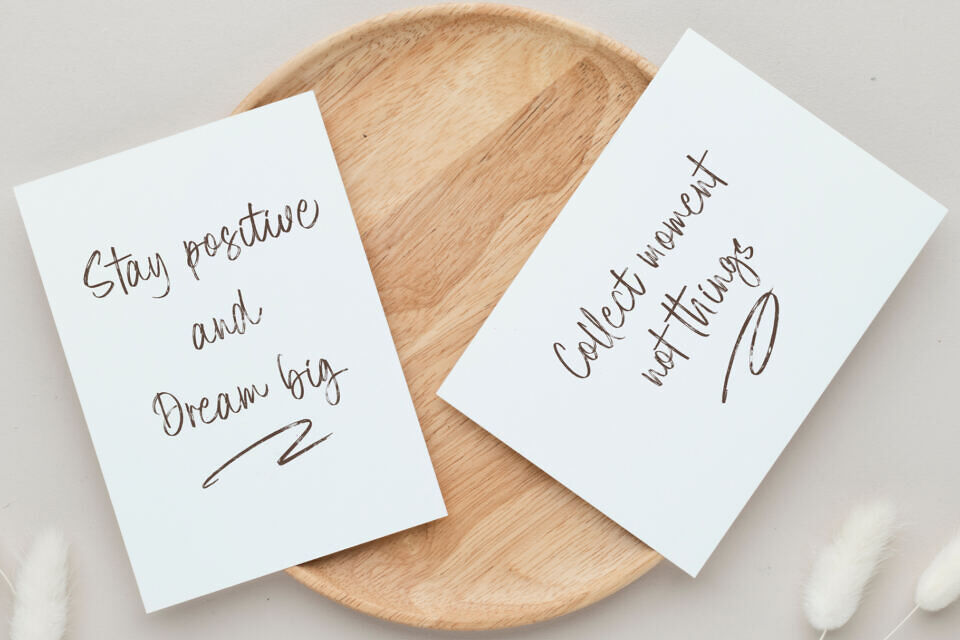 Stay positive
and
Dream big
Collect moment
not things